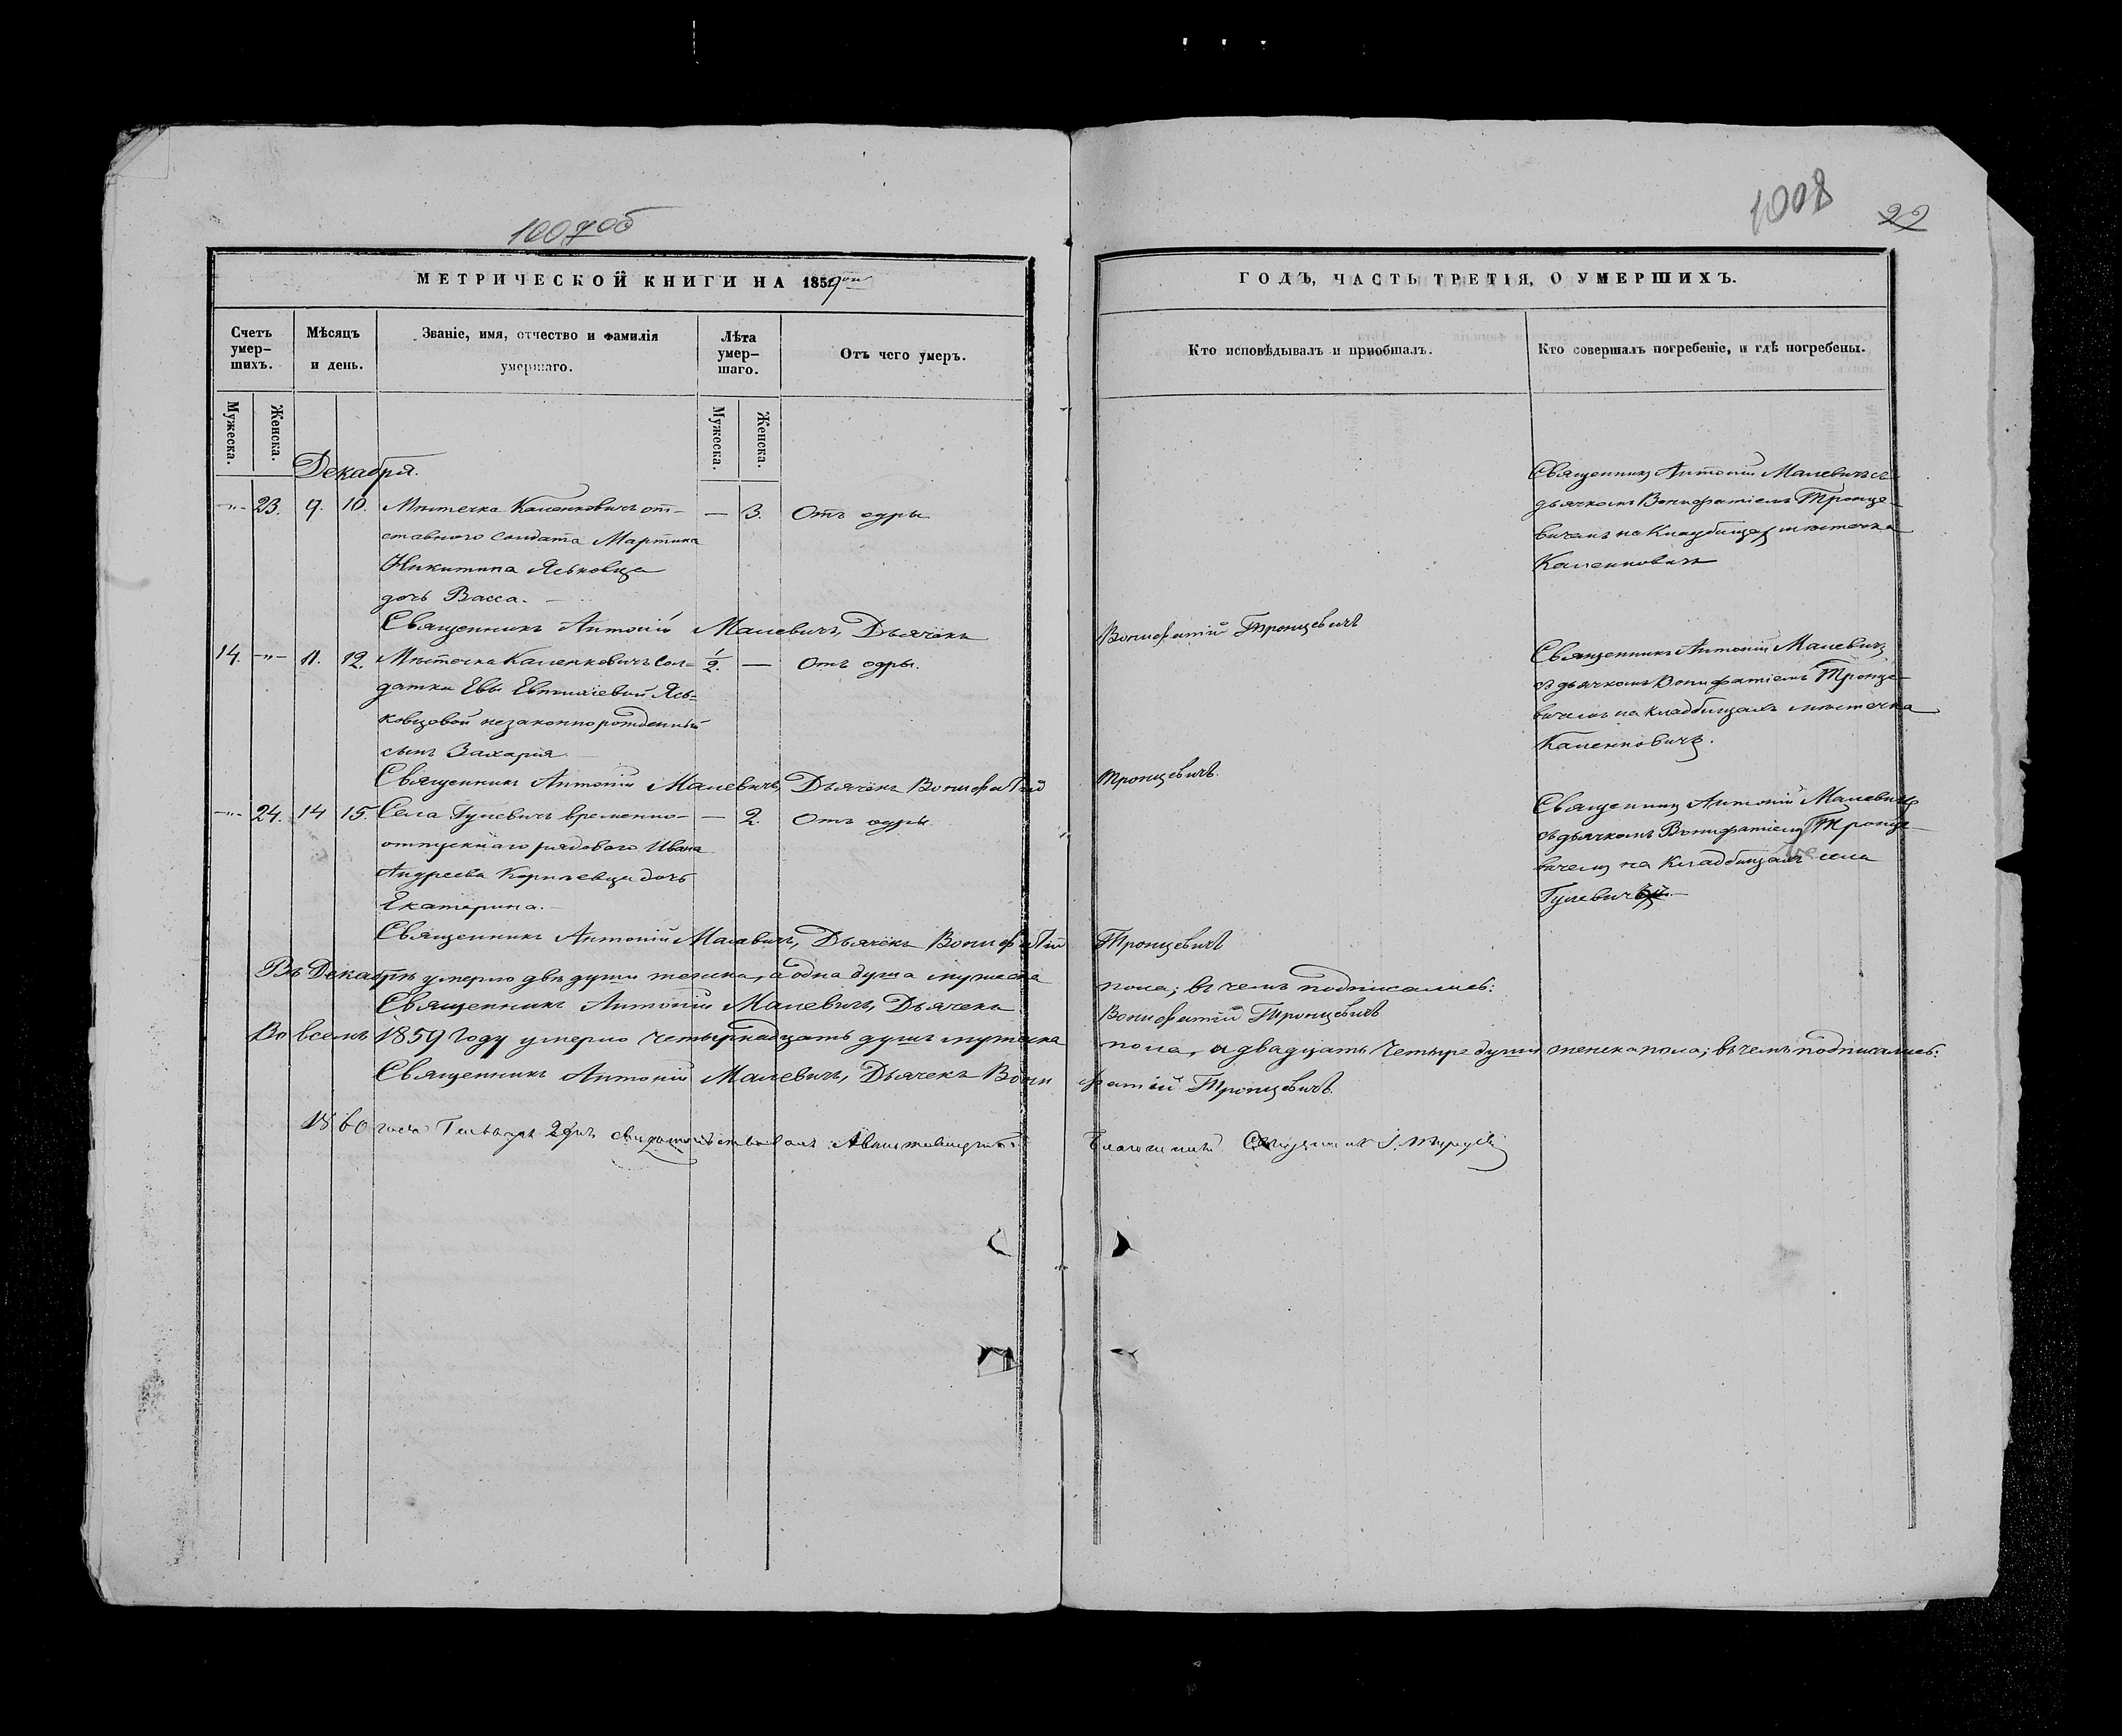 1007об
1008
22
МЕТРИЧЕСКОЙ КНИГИ НА 1859ый
ГОДЪ, ЧАСТЬ ТРЕТІЯ, О УМЕРШИХЪ.
Счетъ умер-шихъ.
Мѣсяцъ и день.
Званіе, имя, отчество и фамилія умершаго.
Лѣта умер-шаго.
Отъ чего умеръ.
Кто исповѣдывалъ и пріобщалъ.
Кто совершалъ погребеніе, и гдѣ погребены.
Мужеска.
Женска.
Мужеска.
Женска.
Декабря.
-"- 23. 9. 10. Мѣстечка Каленковичъ от-
ставного солдата Мартина
Никитина Яськовца
дочь Васса.
— 3. Отъ одры
Священникъ Антоній Малевичъ съ
дьячкомъ Вонифатіемъ Тронце-
вичемъ на кладбищахъ мѣстечка
Каленковичъ
Священникъ Антоній Малевичъ, Дьячекъ Вонифатій Тронцевичъ
14. -"- 11. 12. Мѣстечка Каленковичъ сол-
датки Евы Евтихіевой Ясь-
ковцовой незаконнорожденный
сынъ Захарія
1/2. — Отъ одры.
Священникъ Антоній Малевичъ
съ дьячкомъ Вонифатіемъ Тронце-
вичемъ на кладбищахъ мѣстечка
Каленковичъ.
Священникъ Антоній Малевичъ, Дьячекъ Вонифатій Тронцевичъ.
-"- 24. 14 15. Села Гулевичъ временно-
отпускнаго рядового Ивана
Андреева дочь
Екатерина.
— 2. Отъ одры.
Священникъ Антоній Малевичъ
съ дьячкомъ Вонифатіемъ Тронце-
вичемъ на кладбищахъ села
Гулевичъ
Священникъ Антоній Малевичъ, Дьячекъ Вонифатій Тронцевичъ
Въ Декабрѣ умерло двѣ души женска, а одна душа мужеска пола; въ чемъ подписались:
Священникъ Антоній Малевичъ, Дьячекъ Вонифатій Тронцевичъ
Во всемъ 1859 году умерло четырнадцать душъ мужеска пола, а двадцать четыре души женска пола; въ чемъ подписались:
Священникъ Антоній Малевичъ, Дьячекъ Вонифатій Тронцевичъ.
1860 года Генваря свидѣтельствовалъ Благочинный Священникъ